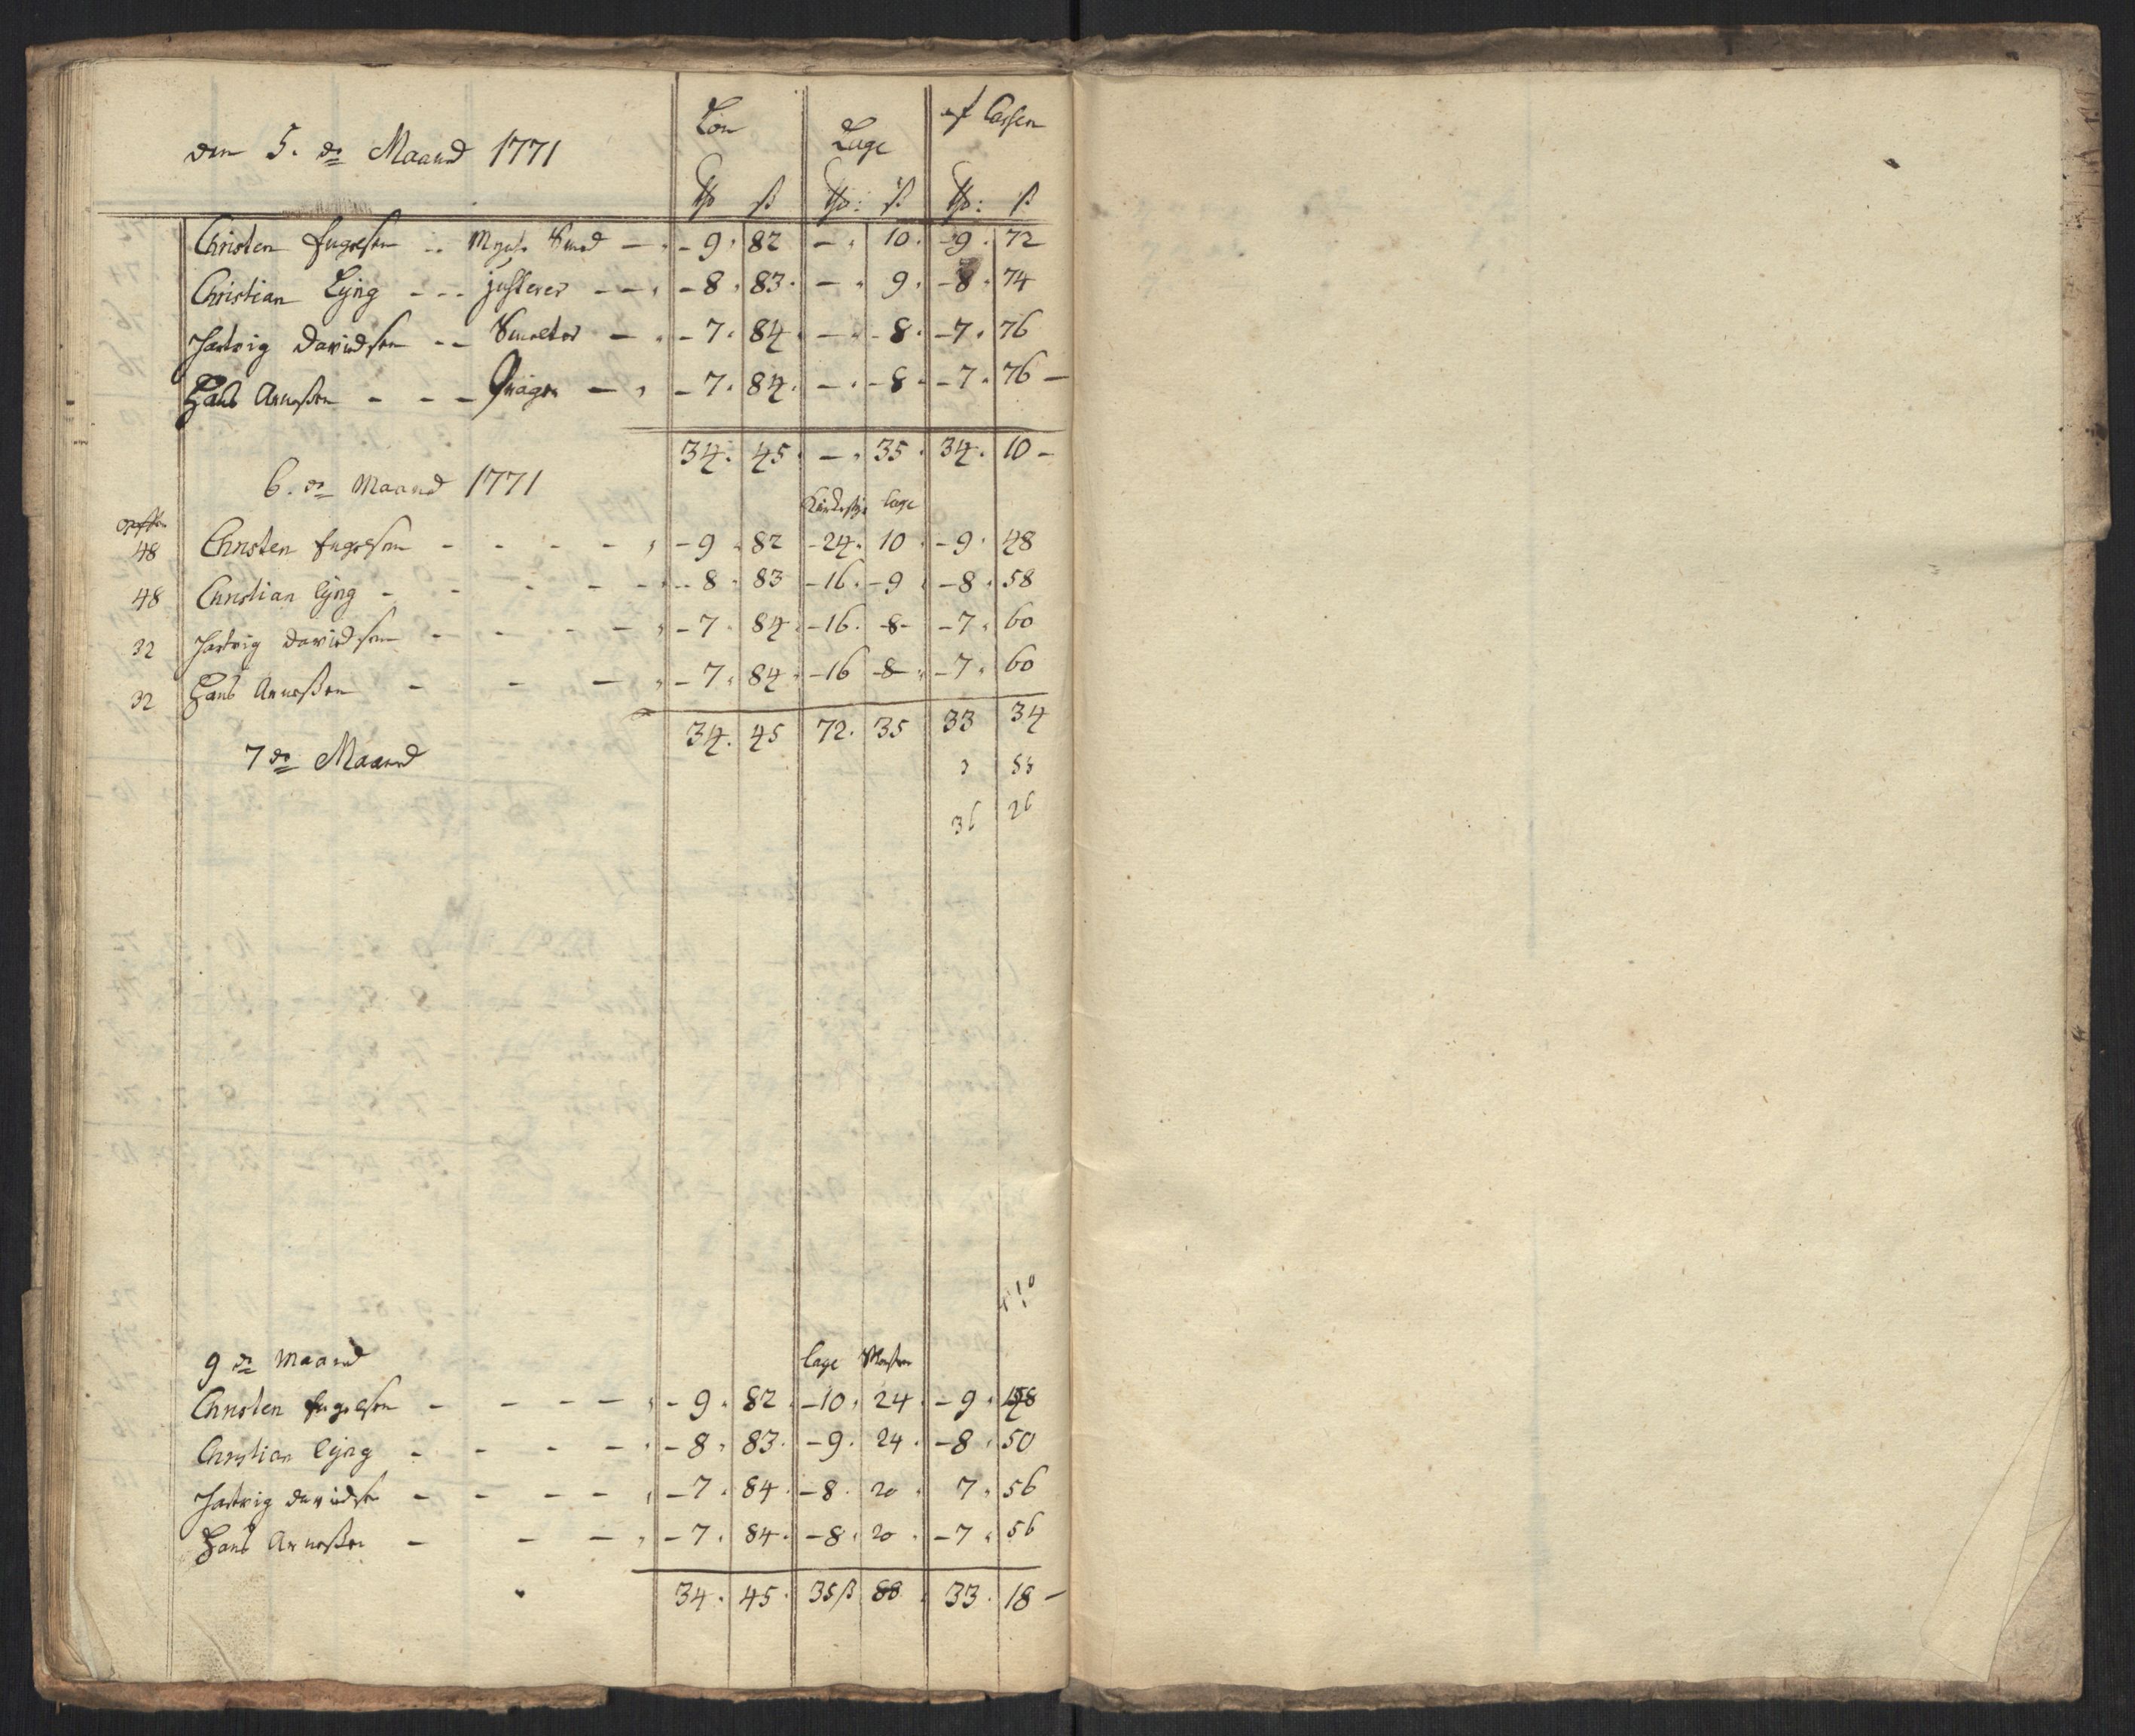 Lön Lage af Cassen
den 5. de Maaned 1771
ß ß ß
Christen Engelsen Smed - 9. 82 - 10. - 9. 72
Christian Lÿng justerer - 8. 83. - 9. - 8. 74
Hartvig Davidsen Smelter - 7. 84. - 8. - 7. 76
Hans Arnesen Präger - 7. 84. - 8. - 7. 76 -
34. 45. - 35. 34. 10 -
6. de Maaned 1771
lage
48 Christen Engelsen - 9. 82 - 24. 10. - 9. 48
48 Christian Lÿng - 8. 83 - 16. - 9 - 8. 58
32 Hartvig Davidsen - 7. 84. - 16. 8 - - 7. 60
32 Hans Arnesen - 7. 84. - 16 8 - - 7. 60
34. 45 72. 35 33 34
7 de Maaned
36 26
9 de Maaned lage
Christen Engelsen - 9. 82. - 10. 24. - 9. 48
Christian Lÿng - 8. 83. - 9. 24. - 8. 50
Hartvig Davidsen - 7. 84. - 8. 20. 7. 56
Hans Arnesen - 7. 84. - 8. 20. - 7. 56
34. 45. 35 ß 88. 33. 18 -